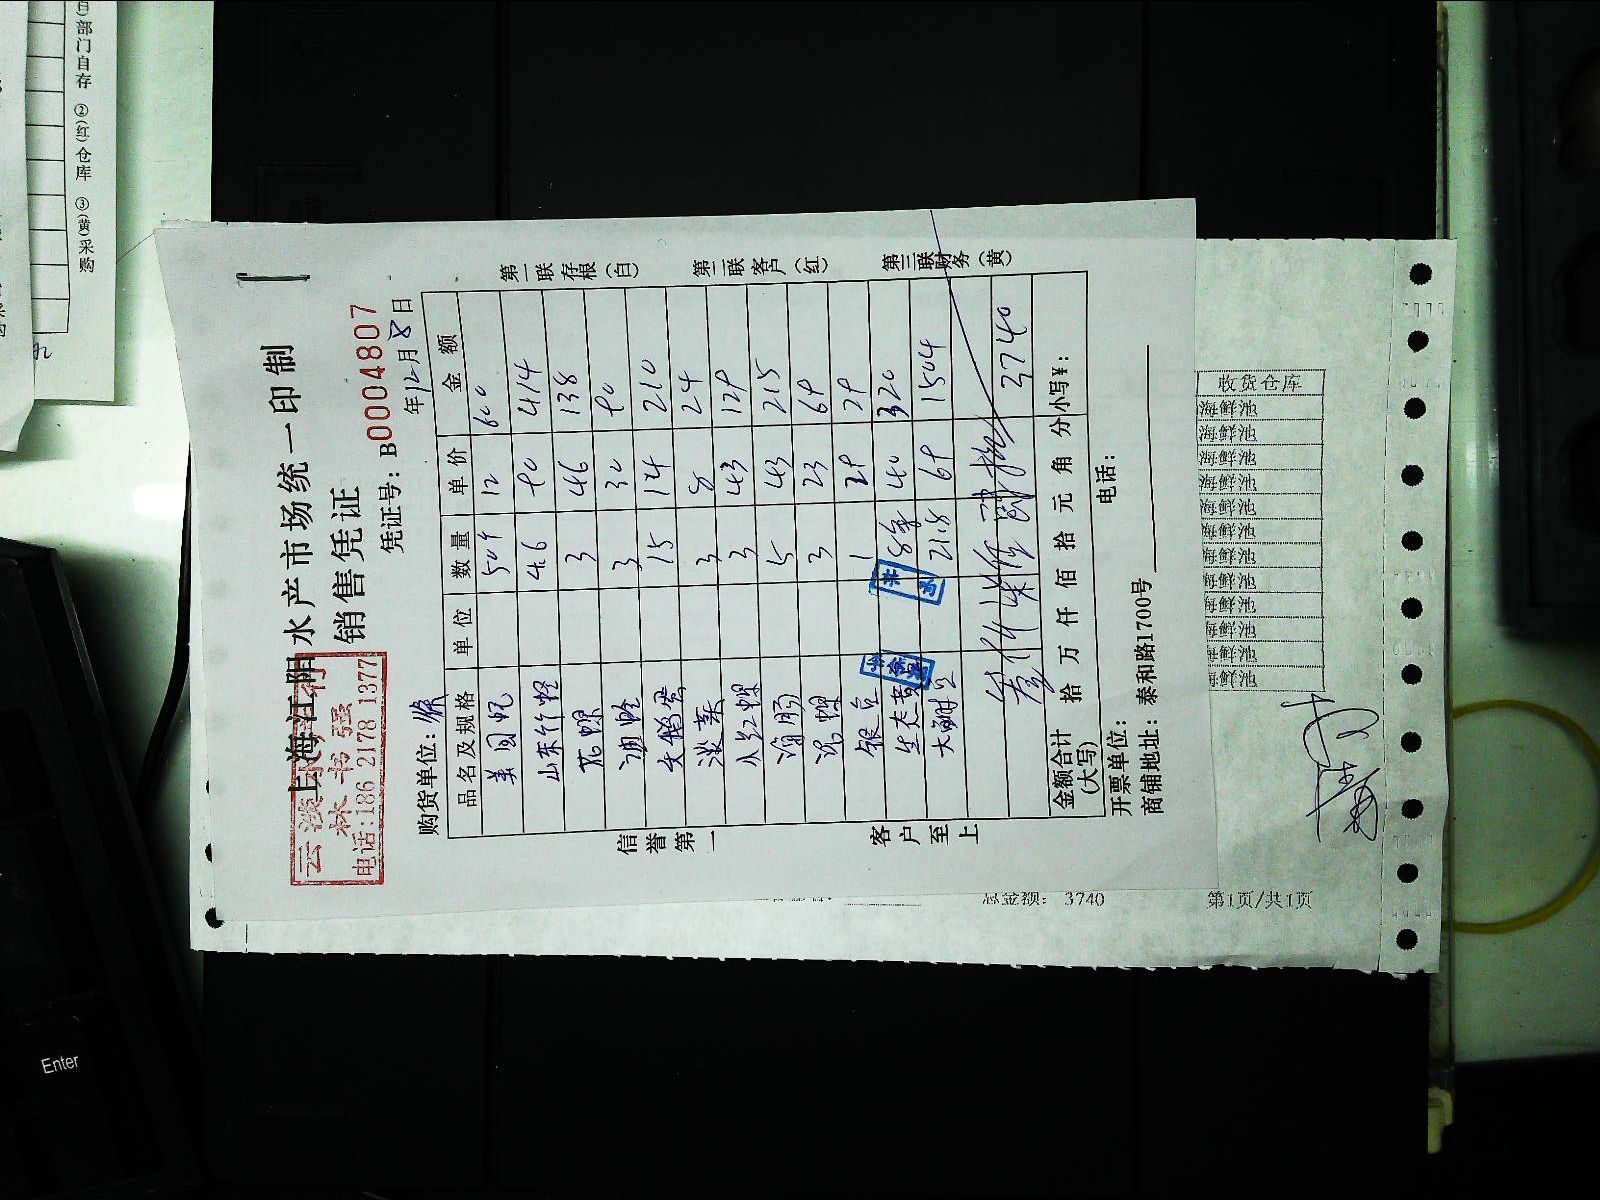 上海江阳水产市场统一印制
销售凭证
林书强
电话:186 2178 1377
凭证号: B00004807
购货单位:
年12月8日
品名及规格 单位 数量 单价 金额
美国蚝 509 12 600
山东竹蛏 4.6 90 414
花螺 3 46 138
3 30 90
天鹅蛋 15 14 210
淡菜 3 8 24
小红螺 3 43 129
海肠 5 43 215
泥螺 3 23 69
1 29 29
8 40 320
大闸蟹 21.8 69 1504
3740
金额合计(大写) 拾 万 仟 佰 拾 元 角 分 小写¥:
开票单位: 电话:
商铺地址: 泰和路1700号
信誉第一
客户至上
第一联存根(白)
第二联客户(红)
第三联财务(黄)
收货仓库
海鲜池
海鲜池
海鲜池
海鲜池
海鲜池
海鲜池
海鲜池
海鲜池
海鲜池
海鲜池
海鲜池
海鲜池
总金额: 3740
第1页/共1页
部门自存 ②(红)仓库 ③(黄)采购
Enter